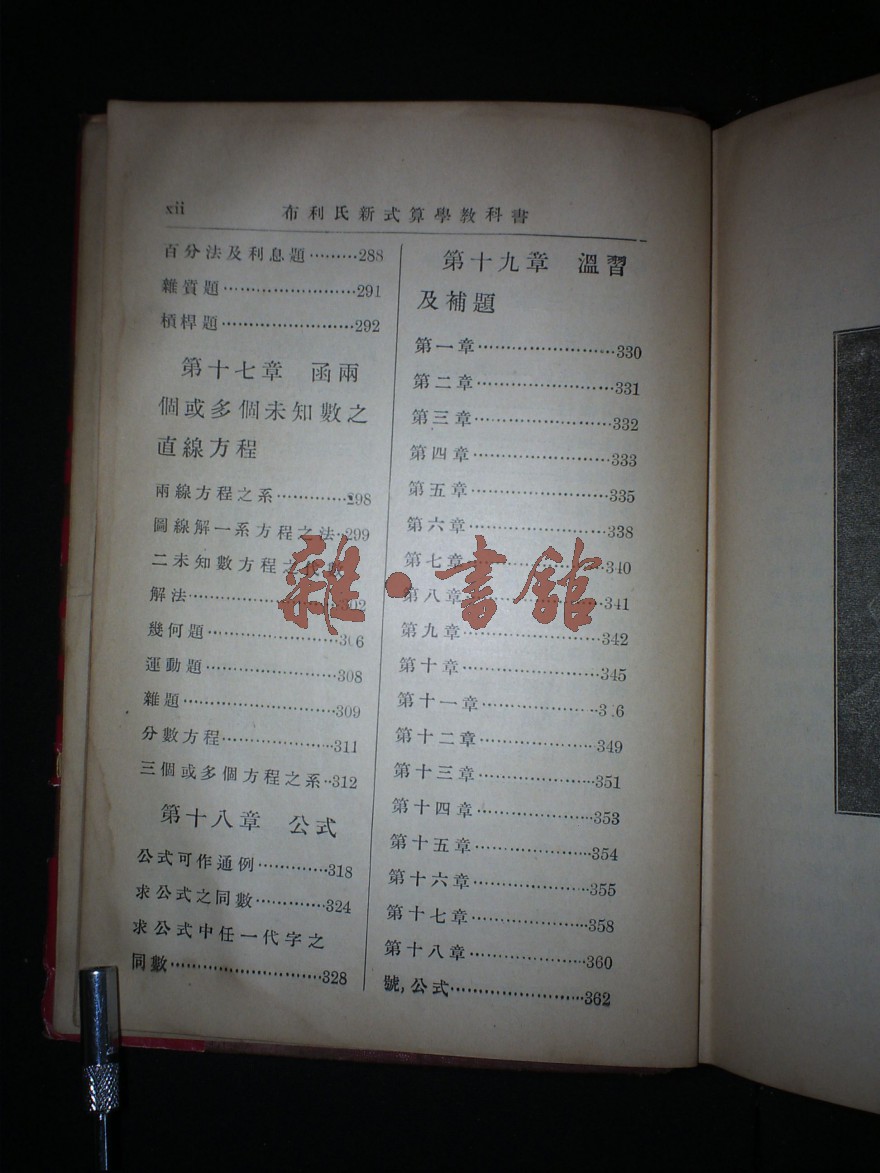 xii 布利氏新式算學教科書
百分法及利息題………288
雜質題……………………291
槓桿題……………………292
第十七章 函兩
個或多個未知數之
直線方程
兩線方程之系…………298
圖線解一系方程之法·299
二未知數方程之代數
解法……………………302
幾何題……………………306
運動題……………………308
雜題………………………309
分數方程…………………311
三個或多個方程之系··312
第十八章 公式
公式可作通例…………318
求公式之同數…………324
求公式中任一代字之
同數………………………328
第十九章 溫習
及補題
第一章……………………330
第二章……………………331
第三章……………………332
第四章……………………333
第五章……………………335
第六章……………………338
第七章……………………340
第八章……………………341
第九章……………………342
第十章……………………345
第十一章…………………3 6
第十二章…………………349
第十三章…………………351
第十四章…………………353
第十五章…………………354
第十六章…………………355
第十七章…………………358
第十八章…………………360
號,公式……………………362
雜·書館